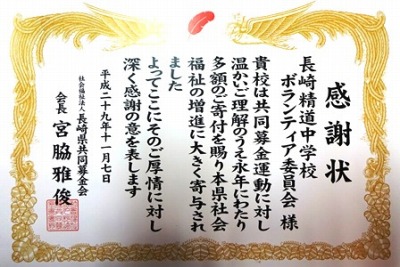 感謝状
長崎精道中学校
ボランティア委員会 様
貴校は共同募金運動に対し
温かいご理解のうえ永年にわたり
多額のご寄付を賜り本県社会
福祉の増進に大きく寄与され
ました
よってここにそのご厚情に対し
深く感謝の意を表します
平成二十九年十一月七日
社会福祉法人 長崎県共同募金会
会長 宮脇雅俊